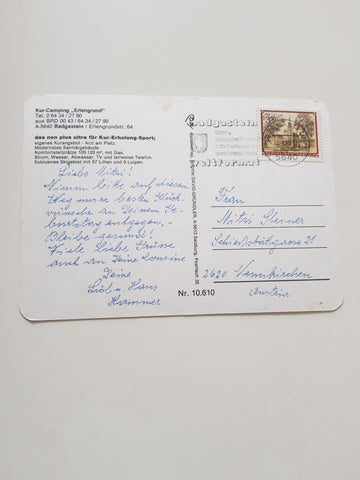 Kur-Camping „Erlengrund“
Tel. 0 64 34 / 27 90
aus BRD 00 43 / 64 34 / 27 90
A-5640 Badgastein / Erlengrundstr. 64
das non plus ultra für Kur-Erholung-Sport;
eigenes Kurangebot - Arzt am Platz.
Modernstes Sanitärgebäude.
Komfortstellplätze 100-120 m², mit Gas,
Strom, Wasser, Abwasser, TV und teilweise Telefon.
Exklusives Skigebiet mit 57 Liften und 9 Loipen.
Liebe Mitzi!
Nimm bitte auf diesem
Weg unsere besten Glück-
wünsche zu Deinem Ge-
burtstag entgegen. -
Bleibe gesund!
Viele liebe Grüsse
auch an Deine Cousine
Deine
u. Hans
Hammer
Badgastein
weltformat
5640
Nr. 10.610
Frau
Mitzi Steiner
2620 Neunkirchen
Austria